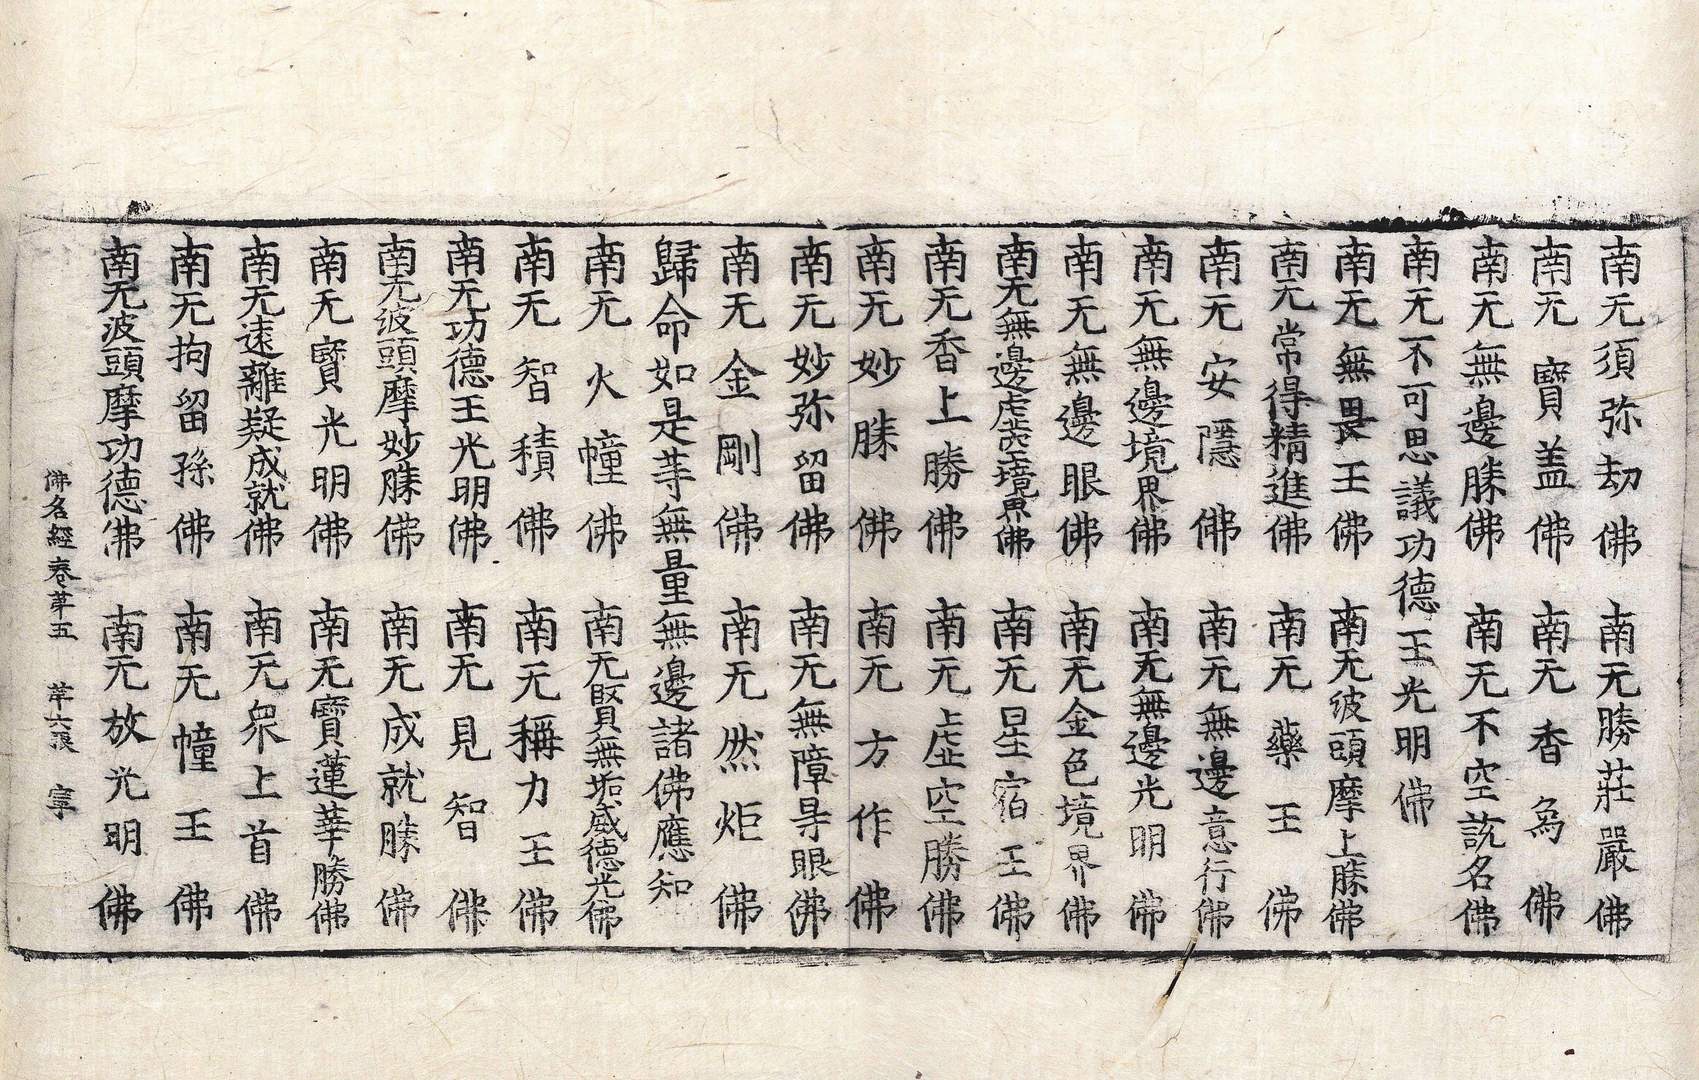 南无須弥劫佛 南无勝莊嚴佛
南无寶盖佛 南无香爲佛
南无無邊勝佛 南无不空說名佛
南无不可思議功德王光明佛
南无無畏王佛 南无波頭摩上勝佛
南无常得精進佛 南无藥王佛
南无安隱佛 南无無邊意行佛
南无無邊境界佛 南无無邊光明佛
南无無邊眼佛 南无金色境界佛
南无無邊虛空境界佛 南无星宿王佛
南无香上勝佛 南无虛空勝佛
南无妙勝佛 南无方作佛
南无妙弥留佛 南无無障㝵眼佛
南无金剛佛 南无然炬佛
歸命如是䓁無量無邊諸佛應知
南无火幢佛 南无賢無垢威德光佛
南无智積佛 南无稱力王佛
南无功德王光明佛 南无見智佛
南无波頭摩妙勝佛 南无成就勝佛
南无寶光明佛 南无寶蓮華勝佛
南无遠離疑成就佛 南无衆上首佛
南无拘留孫佛 南无幢王佛
南无波頭摩功德佛 南无放光明佛
佛名經卷苐五 苐六張 宁